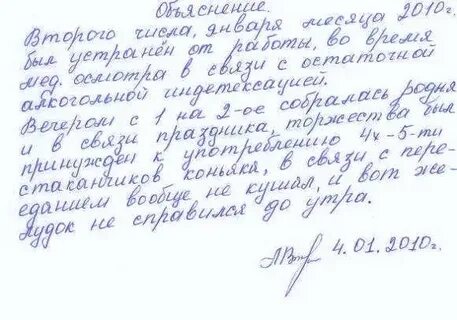 Объяснение.
Второго числа, января месяца 2010г.
был устранён от работы, во время
мед. осмотра в связи с остаточной
алкогольной индетексацией.
Вечером с 1 на 2-ое собралась родня
и в связи праздника, торжества был
принужден к употреблению 4х-5-ти
стаканчиков коньяка, в связи с пере-
еданием вообще не кушал, и вот же-
лудок не справился до утра.
4.01.2010г.